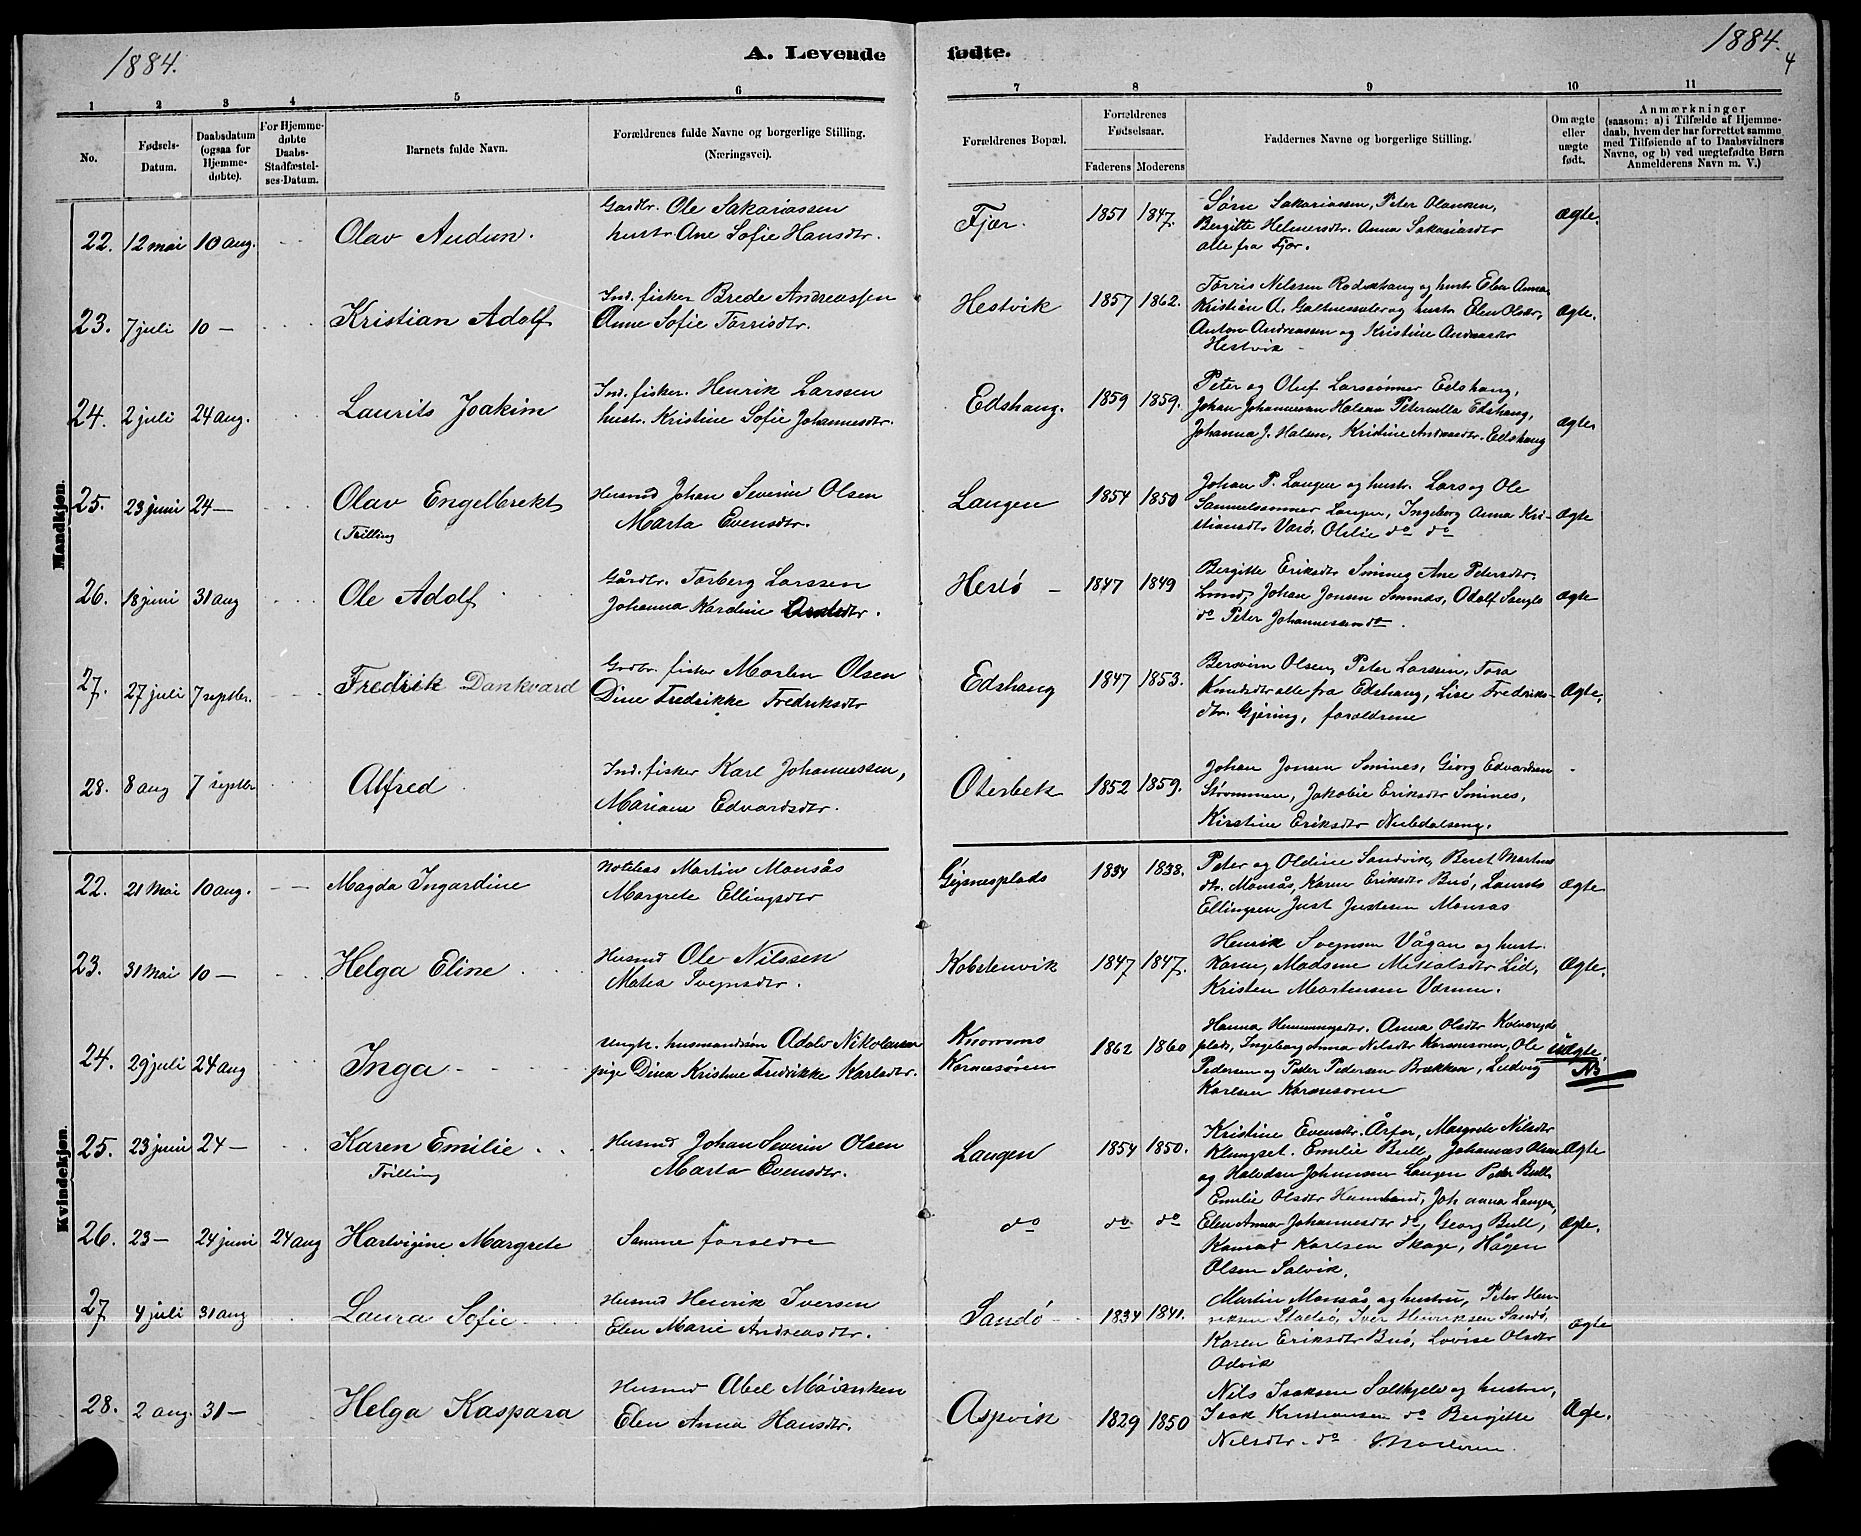 1884.
A. Levende fødte.
1884.
4
1 2 3 4 5 6 7 8 9 10 11
No.
Fødsels-Datum.
Daabsdatum (ogsaa for Hjemme-døbte).
For Hjemme-døbte Daabs-Stadfæstel-ses-Datum.
Barnets fulde Navn.
Forældrenes fulde Navne og borgerlige Stilling.
(Næringsvei).
Forældrenes Bopæl.
Forældrenes Fødselsaar.
Faderens Moderens
Faddernes Navne og borgerlige Stilling.
Om ægte eller uægte født.
Anmærkninger
(saasom: a) i Tilfælde af Hjemme-
daab, hvem der har forrettet samme
med Tilføiende af to Daabsvidners
Navne, og b) ved uægtefødte Børn
Anmelderens Navn m. V.)
Mandkjøn.
22. 12 mai 10 aug. Olav Audun. Gardbr. Ole Sakariassen
hustr. Ane Sofie Hansdtr. Fjær. 1851 1847. Ægte.
Søren Sakariassen, Peter Olaussen,
Bergitte Helmersdtr. Anna Sakariasdtr
alle fra Fjær.
23. 7 juli 10 — Kristian Adolf Ind. fisker Brede Andreassen
Anne Sofie Torrisdtr. Hestvik 1857 1862. Ægte.
Torris Nilssen og hustr. Elen Anna
Kristian A. og hustr. Elen Olsdtr,
Anton Andreassen og Kristine Andreasdtr
Hestvik —
24. 2 juli 24 aug. Laurits Joakim Ind. fisker. Henrik Larssen
hustr. Kristine Sofie Johannesdtr. Edshaug. 1859 1859. Ægte
Peter og Oluf Larssønner Edshaug,
Johan Johannessen Halsen Peternella Edshaug,
Johanna J. Halsen, Kristine Andreasdtr. Edshaug
25. 23 juni 24 — Olav Engelbrekt
(Trilling
Husmd Johan Severin Olsen
Marta Evensdtr. Langen 1854 1850 Ægte
Johan P. Langen og hustr. Lars og Ole
Samuelssønner Langen, Ingeborg Anna Kri-
stiansdtr Værø, Otilie do do
26. 18 juni 31 aug Ole Adolf Gårdbr. Torberg Larssen
Johanna Kardine Hestø — 1847 1849 Ægte
Bergitte Eriksdtr Ane Petersdtr.
Lund, Johan Jonsen
do Peter Johannessen do.
27. 27 juli 7 septbr. Fredrik Dankvard Grdbr. fisker Morten Olsen
Dine Fredrikke Fredriksdtr Edshaug 1847 1853. Ægte.
Bersvein Olsen, Peter Larssen, Tora
Knudsdtr alle fra Edshaug, Lise Fredriks-
dtr. Gjering, forældrene
28. 8 aug 7 septbr Alfred Ind. fisker Karl Johannessen,
Mariane Edvardsdtr. Oterbek 1852 1859.
Johan Jonsen Georg Edvardsen
Strømmen, Jakobie Eriksdtr
Kirstine Eriksdtr
Kvindekjøn.
22. 21 Mai 10 aug. Magda Ingardine Martin Monsås
Margrete Ellingsdtr Gjesnesplads 1834 1838. Ægte
Peter og Oldine Sandvik, Beret Martins
dtr. Monsås, Karen Eriksdtr Buø, Laurits
Ellingsen Just Justesen Monsås
23. 31 Mai 10 — Helga Eline Husmd Ole Nilssen
Matea Svensdtr. Kobstenvik 1847 1847. Ægte.
Henrik Vågan og hustr.
Karen, Madsene Mikalsdtr Lid,
Kristen Martensen Værum.
24. 29 juli 24 aug Inga Ungk. husmandssøn Adolv Nikolaisen
pige Dina Kristine Fredrikke Karlsdtr. Knarrum
Kornesøren 1862 1860 Uægte.
NB
Hanna Hemmingsdtr. Anna Olsdtr
plads, Ingeborg Anna Nilsdtr Ole
Pedersen og Peder Pedersen Brækken, Ludvig
Karlsen
25. 23 juni 24 — Karen Emilie
Trilling
Husmd Johan Severin Olsen
Marta Evensdtr. Langen 1854 1850. Ægte
Kristine Evensdtr. Årfor, Margrete Nilsdtr
Emilie Bull, Johannes Olsen
og Halvdan Johnsen Langen Peder Bull
Emilie Olsdtr Johanna Langen,
26. 23 — 24 juni 24 aug Hartvigine Margrete Samme forældre do do do Ægte.
Elen Anna Johannesdtr do, Georg Bull,
Konrad Karlsen Skage, Hågen
Olsen Salvik.
27 4 juli 31 aug Laura Sofie Husmd Henrik Iversen
Elen Marie Andreasdtr. Sandø 1834 1841. Ægte
Martin Monsås og hustru, Peter Hen-
riksen Iver Henriksen Sandø,
Karen Eriksdtr Buø, Lovise Olsdtr
Odvik
28. 2 aug. 31 — Helga Kaspara Husmd Abel
Elen Anna Hansdtr. Aspvik 1829 1850 Ægte.
Nils Isaksen og hustru,
Isak Kristiansen do Bergitte
Nilsdtr. do Moderen.